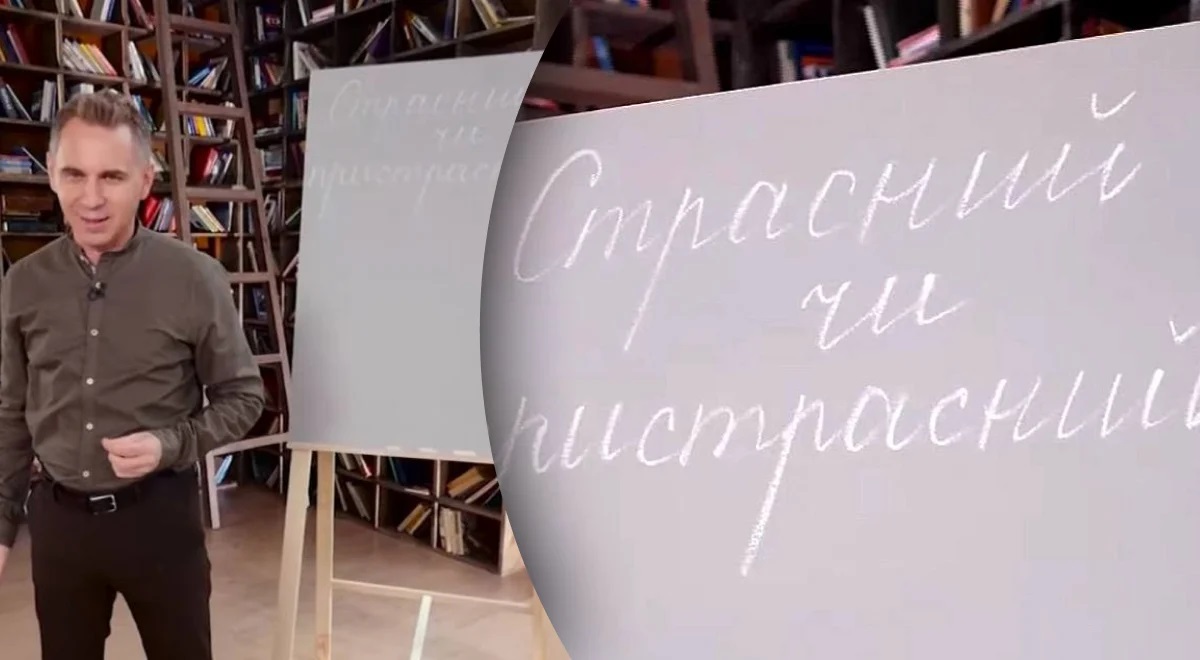 Страсний
чи
пристрасний